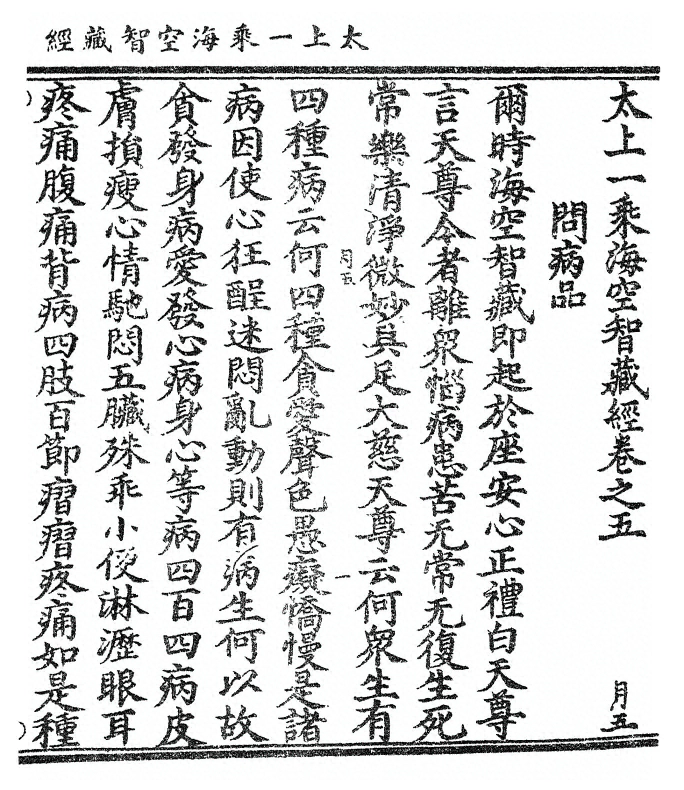 太上一乘海空智藏經
太上一乘海空智藏經卷之五 月五
問病品
爾時海空智藏即起於座安心正禮白天尊
言天尊今者離衆惱病患苦无常无復生死
常樂清淨微妙具足大慈天尊云何衆生有
月五 一
四種病云何四種貪愛聲色愚癡憍慢是諸
病因使心狂酲迷悶亂動則有病生何以故
貪發身病愛發心病身心等病四百四病皮
膚損瘦心情馳悶五臟殊乖小便淋瀝眼耳
疼痛腹痛背病四肢百節疼痛如是種